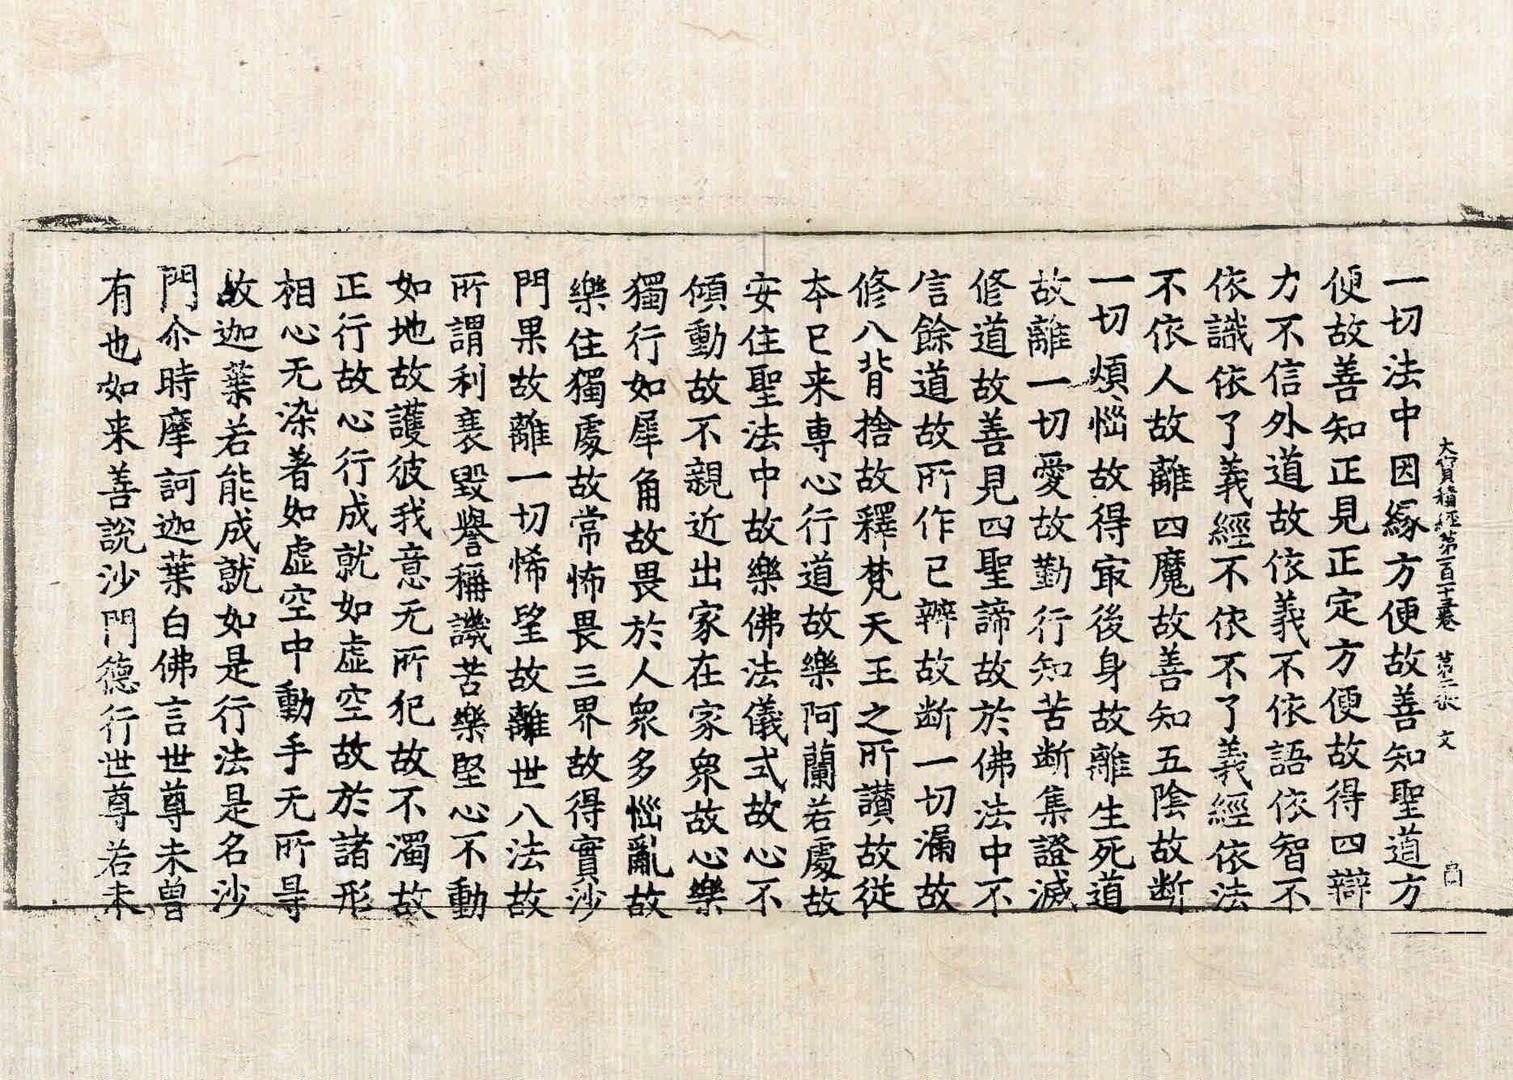 大寶積經第一百十三卷 第二張 文
一切法中因緣方便故善知聖道方
便故善知正見正定方便故得四辯
力不信外道故依義不依語依智不
依識依了義經不依不了義經依法
不依人故離四魔故善知五陰故断
一切煩惱故得㝡後身故離生死道
故離一切愛故勤行知苦断集證滅
修道故善見四聖諦故於佛法中不
信餘道故所作已辨故断一切漏故
修八背捨故釋梵天王之所讃故從
夲已来專心行道故樂阿蘭若處故
安住聖法中故樂佛法儀式故心不
傾動故不親近出家在家衆故心樂
獨行如犀角故畏於人衆多惱亂故
樂住獨處故常怖畏三界故得實沙
門果故離一切悕望故離世八法故
所謂利衰毀譽稱譏苦樂堅心不動
如地故護彼我意无所犯故不濁故
正行故心行成就如虛空故於諸形
相心无染著如虛空中動手无所㝵
故迦葉若能成就如是行法是名沙
門尒時摩訶迦葉白佛言世尊未曾
有也如来善說沙門德行世尊若未